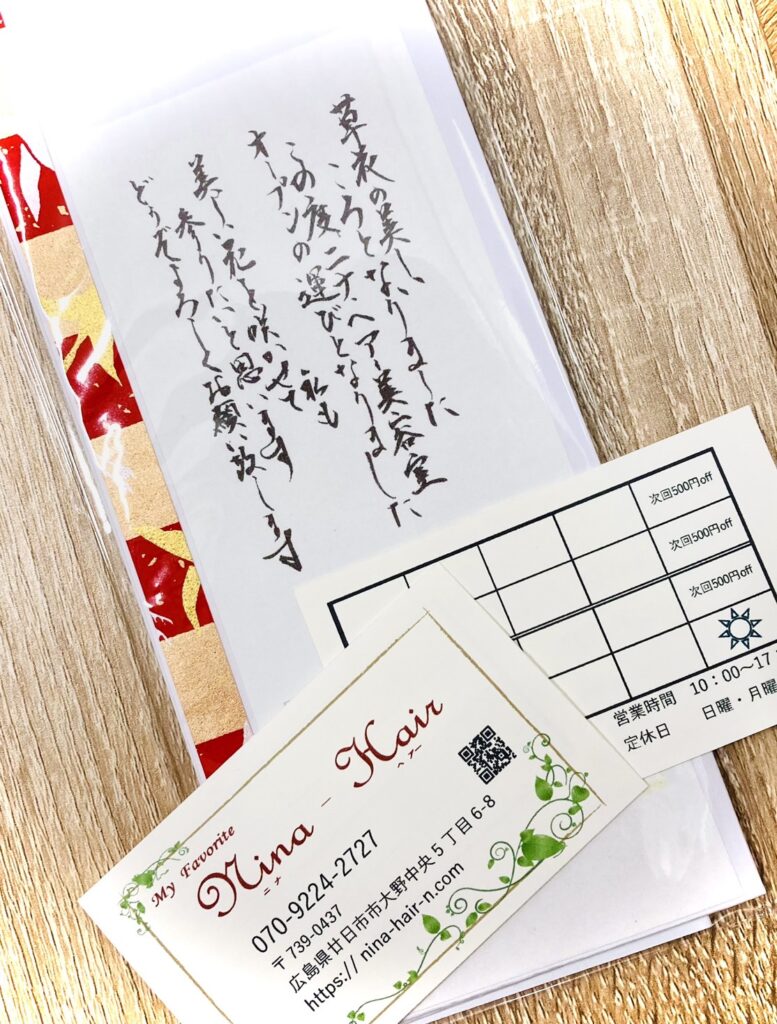 草衣の美しい
ころとなりました
この度ニナ、ヘアー美容室
オープンの運びとなりました
私も
美しい花を咲かせて
参りたいと思います
どうぞよろしくお願い致します
次回500円off
次回500円off
次回500円off
営業時間 10:00～17:
定休日 日曜・月曜
My Favorite
Nina - Hair
ニナ ヘアー
070-9224-2727
〒739-0437
広島県廿日市市大野中央5丁目6-8
https://nina-hair-n.com